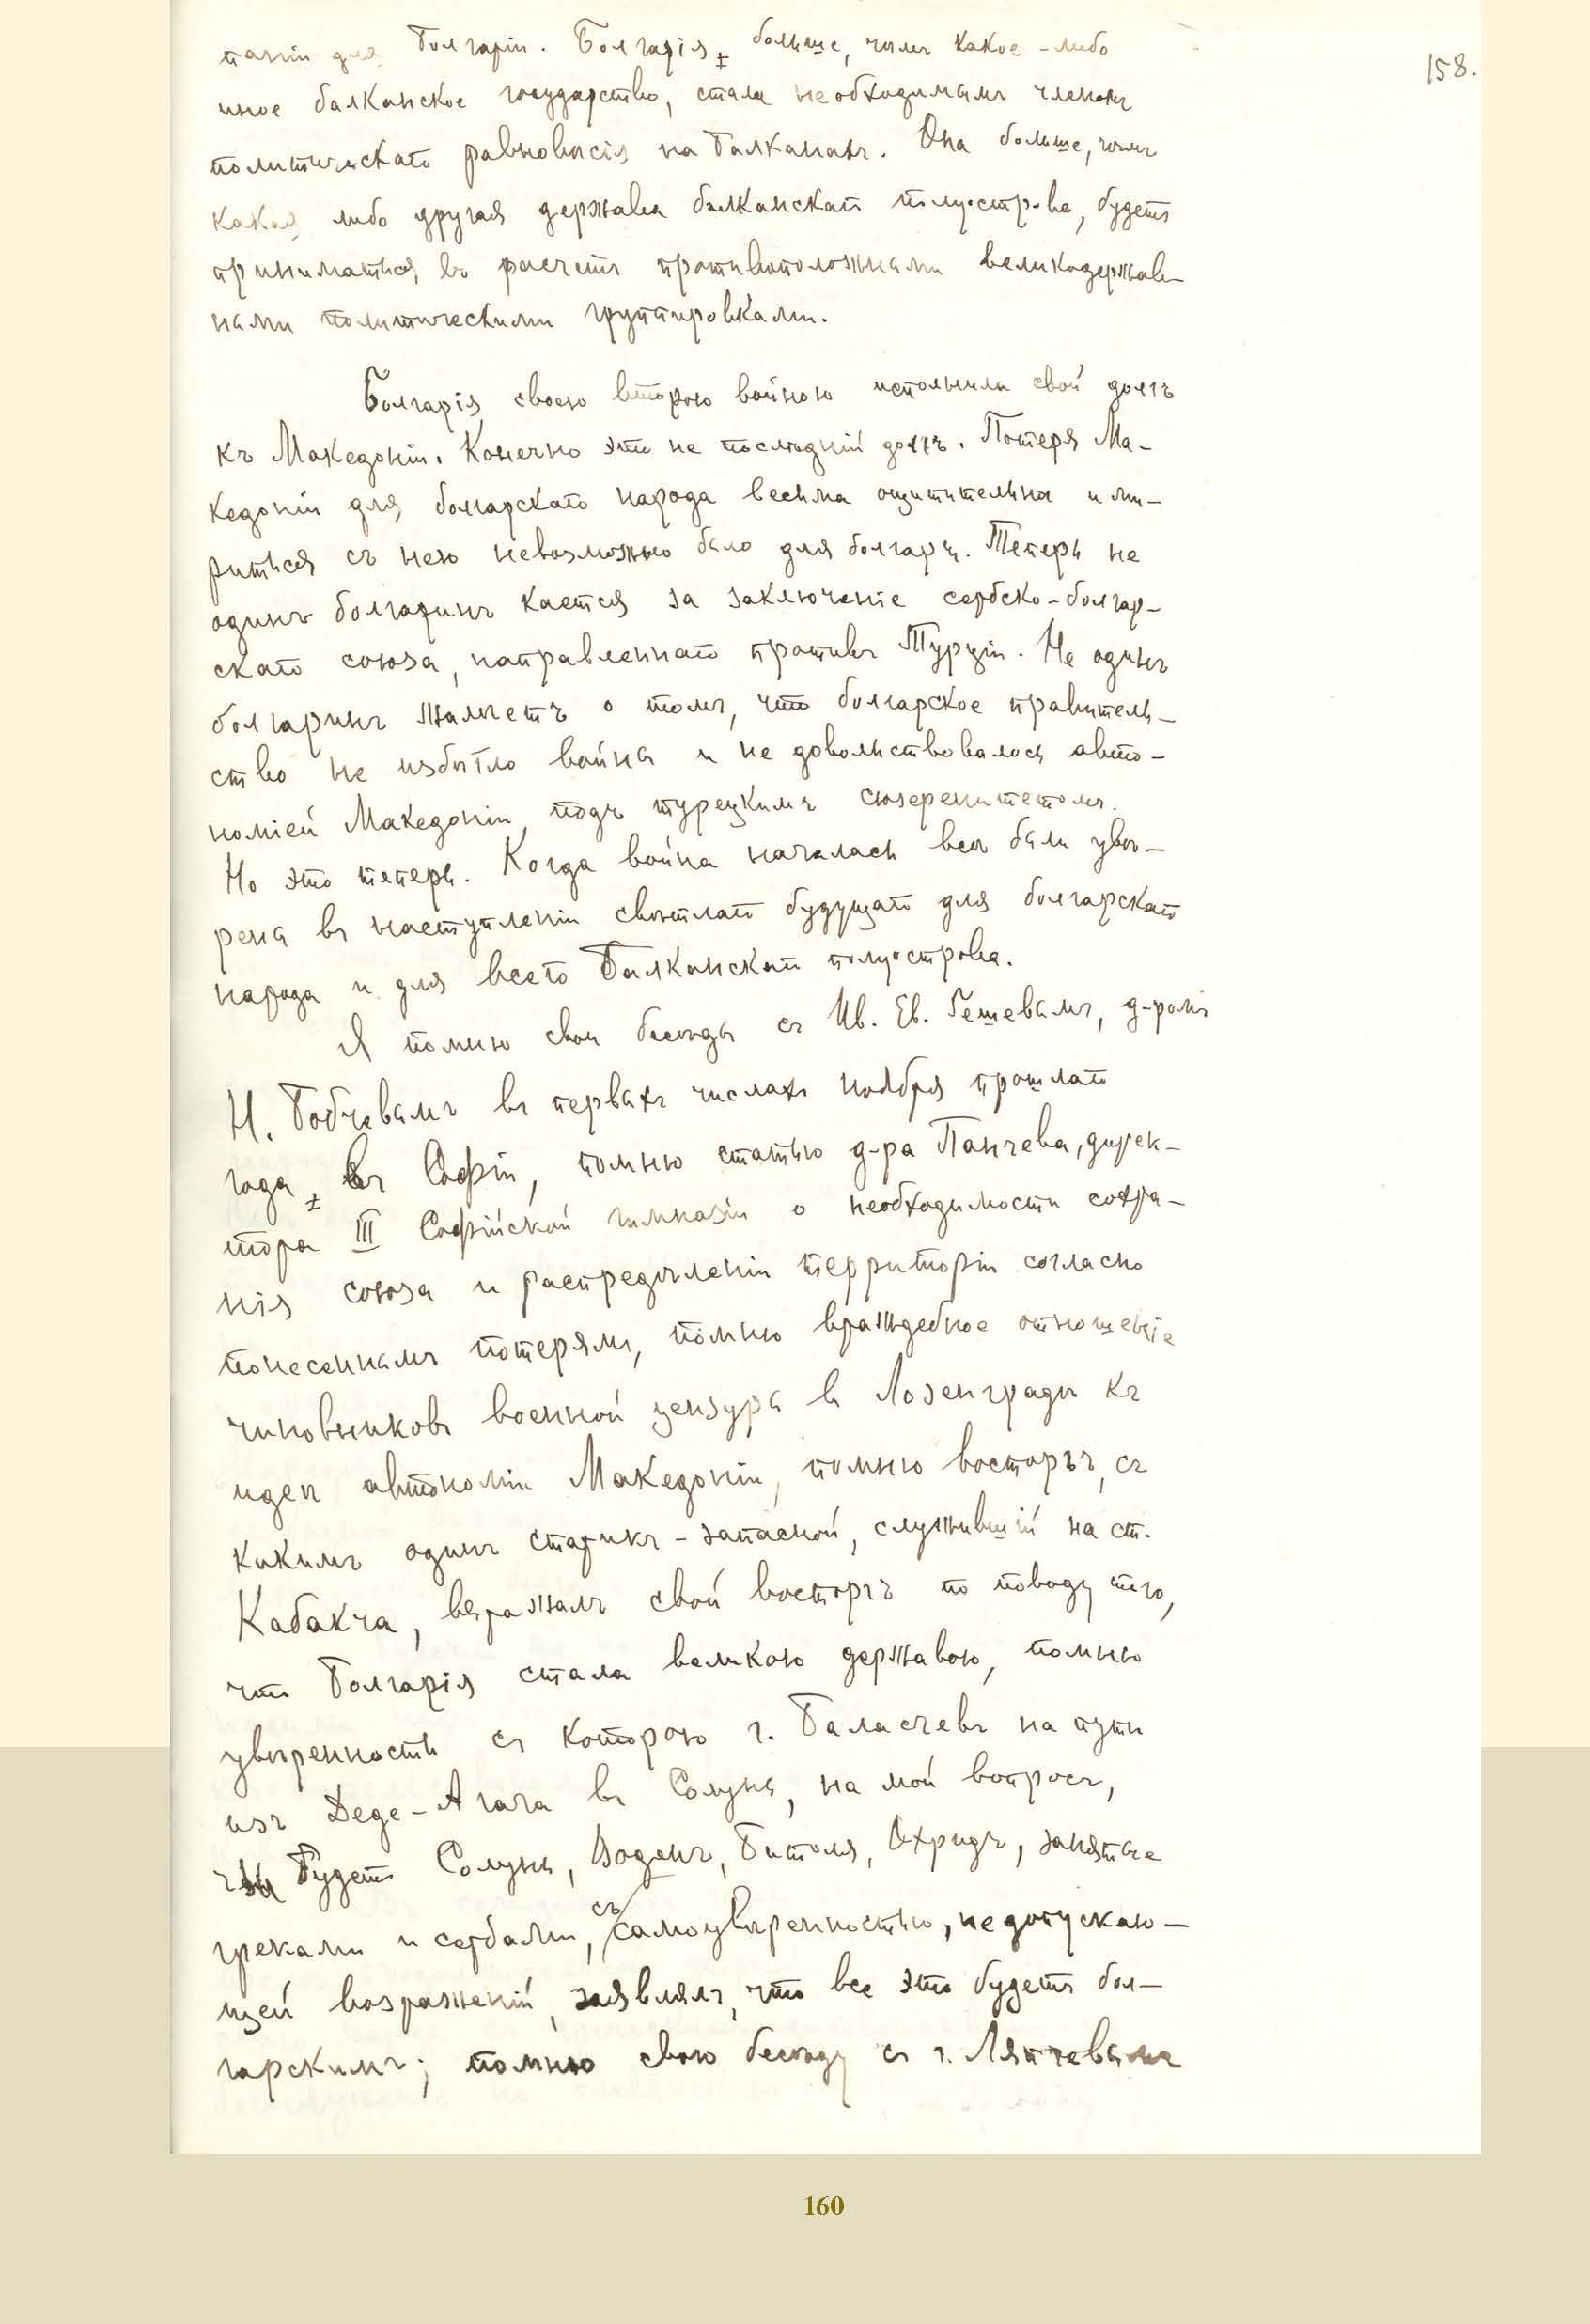 158.
паніи для Болгаріи. Болгарія, больше, чѣмъ какое-либо
иное балканское государство, стала необходимымъ членомъ
политическаго равновѣсія на Балканахъ. Она больше, чѣмъ
какая либо другая держава балканскаго полуострова, будетъ
приниматься въ расчетъ противоположными великодержав-
ными политическими группировками.
Болгарія своею второю войною исполнила свой долгъ
къ Македоніи. Конечно это не послѣдній долгъ. Потеря Ма-
кедоніи для болгарскаго народа весьма ощутительна и ми-
риться съ нею невозможно было для болгаръ. Теперь не
одинъ болгаринъ кается за заключеніе сербско-болгар-
скаго союза, направленнаго противъ Турціи. Не одинъ
болгаринъ жалѣетъ о томъ, что болгарское правитель-
ство не избѣгло войны и не довольствовалось авто-
номіей Македоніи подъ турецкимъ сюзеренитетомъ.
Но это теперь. Когда война началась всѣ были увѣ-
рены въ наступленіи свѣтлаго будущаго для болгарскаго
народа и для всего Балканскаго полуострова.
Я помню свои бесѣды съ Ив. Ев. Гешевымъ, д-ромъ
Н. Бобчевымъ въ первыхъ числахъ ноября прошлаго
года, въ Софіи, помню статью д-ра Панчева, дирек-
тора III Софійской гимназіи о необходимости сохра-
нія союза и распредѣленіи территоріи согласно
понесеннымъ потерямъ, помню враждебное отношеніе
чиновниковъ военной цензуры въ Лозенградѣ къ
идеѣ автономіи Македоніи, помню восторгъ, съ
какимъ одинъ старикъ-запасной, служившій на ст.
Кабакча, выражалъ свой восторгъ по поводу того,
что Болгарія стала великою державою, помню
увѣренность съ которою г. Баласчевъ на пути
изъ Деде-Агача въ Солунь, на мой вопросъ,
чьи будетъ Солунь, Воденъ, Битоля, Охридъ, занятые
греками и сербами, съ самоувѣренностью, не допускаю-
щей возраженій, заявлялъ, что все это будетъ бол-
гарскимъ; помню свою бесѣду съ г. Ляпчевымъ
160